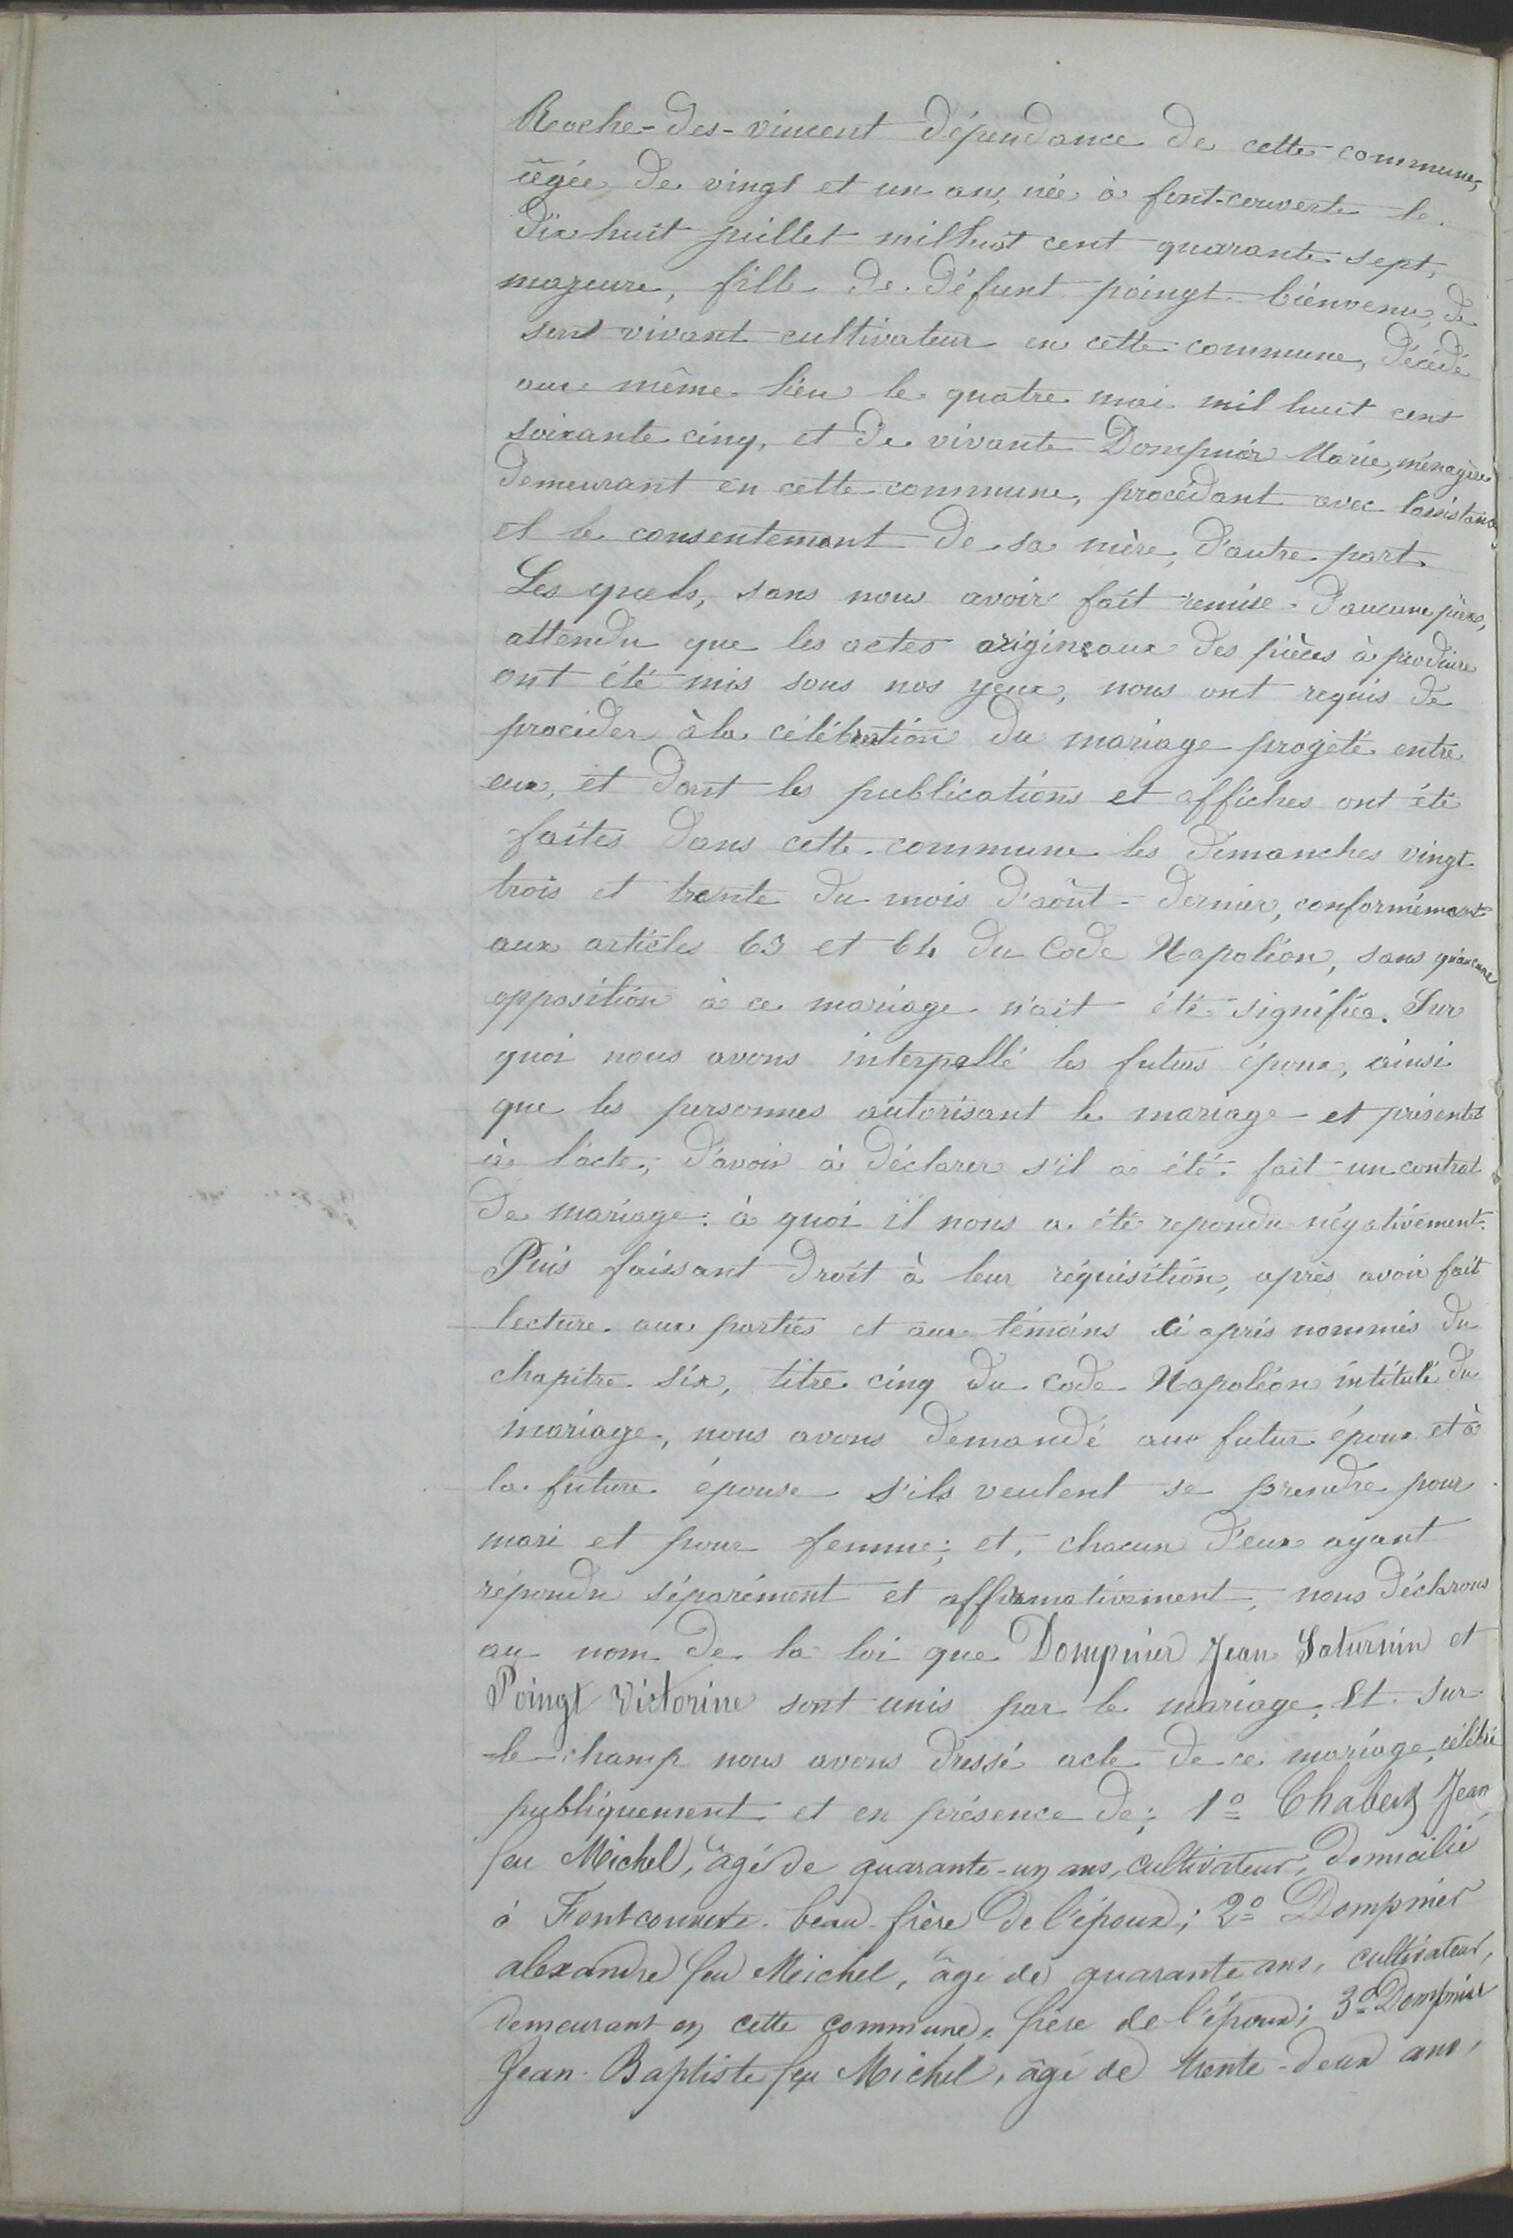 Reoche-des-vincent dépendance de cette commune,
âgée de vingt et un ans, née à font-couverte le
dix huit juillet mil huit cent quarante sept,
majeure, fille de défunt poingt bienvenu, de
son vivant cultivateur en cette commune, décédé
aux même lieu le quatre mai mil huit cent
soixante cinq, et de vivante Dompnier Marie, ménagère
demeurant en cette commune, procédant avec l'assistance
et le consentement de sa mère, d'autre part
Les quels, sans nous avoir fait remise d'aucune pièces,
attendu que les actes origineaux des pièces à produire
ont été mis sous nos yeux, nous ont requis de
procéder à la célébration du mariage projeté entre
eux, et dont les publications et affiches ont été
faites dans cette commune les dimanches vingt
trois et trente du mois d'août dernier, conformément
aux articles 63 et 64 du Code Napoléon, sans qu'aucune
opposition à ce mariage n'ait été signifiée. Sur
quoi nous avons interpellé les futurs époux, ainsi
que les personnes autorisant le mariage et présentes
à l'acte, d'avoir à déclarer s'il a été fait un contrat
de mariage: à quoi il nous a été repondu négativement.
Puis faissant droit à leur réquisition, après avoir fait
lecture aux parties et aux témoins ci après nommés du
chapitre six, titre cinq du code Napoléon intitulé du
mariage, nous avons demandé aux futur époux et à
la future épouse s'ils veulent se prendre pour
mari et pour femme; et, chacun d'eux ayant
répondu séparément et affirmativement, nous déclarons
au nom de la loi que Dompnier Jean Saturnin et
Poingt Victorine sont unis par le mariage. Et sur
le-champ nous avons dressé acte de ce mariage célébré
publiquement et en présence de: 1º Chabert Jean
feu Michel, âgé de quarante-un ans, cultivateur, domicilié
à Fontcouverte beau-frère de l'époux; 2º Dompnier
alexandre feu Michel, âgé de quarante ans, cultivateur,
demeurant en cette commune, frère de l'époux; 3º Dompnier
Jean-Baptiste feu Michel, âgé de trente-deux ans,